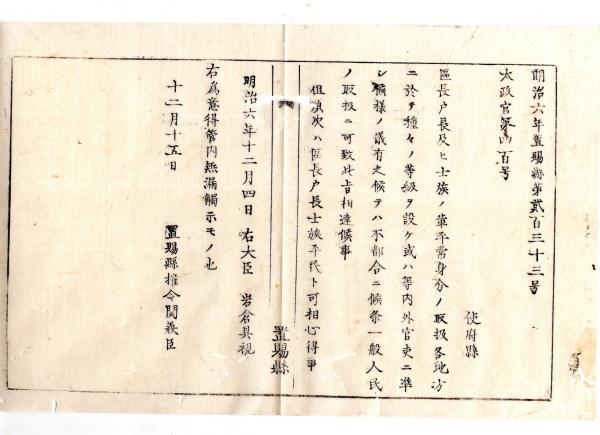 明治六年置賜縣第貳百三十三号
太政官第四百号
使府縣
區長戸長及ヒ士族ノ輩平常身分ノ取扱各地方
ニ於テ種々ノ等級ヲ設ケ或ハ等内外官吏ニ準
シ候様ノ儀有之候テハ不都合ニ候条一般人民
ノ取扱ニ可致此旨相達候事
但順次ハ區長戸長士族平民ト可相心得事
置賜縣
明治六年十二月四日 右大臣 岩倉具視
右為意得管内無漏觸示モノ也
十二月十五日 置賜縣権令関義臣